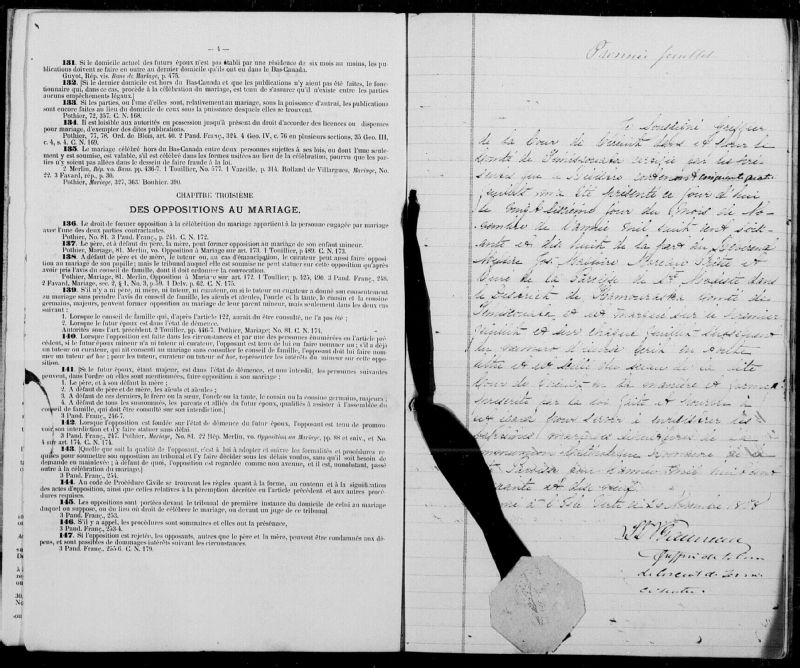 — 4 —
131. Si le domicile actuel des futurs époux n'est pas établi par une résidence de six mois au moins, les pu-
blications doivent se faire en outre au dernier domicile qu'ils ont eu dans le Bas-Canada.
Guyot, Rép. vis. Bans de Mariage, p. 475.
132. [Si le dernier domicile est hors du Bas-Canada et que les publications n'y aient pas été faites, le fonc-
tionnaire qui, dans ce cas, procède à la célébration du mariage, est tenu de s'assurer qu'il n'existe entre les parties
aucuns empêchements légaux.]
133. Si les parties, ou l'une d'elles sont, relativement au mariage, sous la puissance d'autrui, les publications
sont encore faites au lieu du domicile de ceux sous la puissance desquels elles se trouvent.
Pothier, 72, 357. C. N. 168.
134. Il est loisible aux autorités en possession jusqu'à présent du droit d'accorder des licences ou dispenses
pour mariage, d'exempter des dites publications.
Pothier, 77, 78. Ord. de Blois, art. 40. 2 Pand. Franç., 324. 4 Geo. IV, c. 76 en plusieurs sections, 35 Geo. III,
c. 4, s. 4. C. N. 169.
135. Le mariage célébré hors du Bas-Canada entre deux personnes sujettes à ses lois, ou dont l'une seule-
ment y est soumise, est valable, s'il est célébré dans les formes usitées au lieu de la célébration, pourvu que les par-
ties n'y soient pas allées dans le dessein de faire fraude à la loi.
2 Merlin, Rép. vo. Bans. pp. 436-7. 1 Touillier, No. 577. 1 Vazeille, p. 314. Rolland de Villargues, Mariage, No.
22. 3 Favard, rép., p. 30.
Pothier, Mariage, 327, 363. Bouhier. 390.
CHAPITRE TROISIÈME
DES OPPOSITIONS AU MARIAGE.
136. Le droit de former opposition à la célébration du mariage appartient à la personne engagée par mariage
avec l'une des deux parties contractantes.
Pothier, No. 81. 3 Pand. Franç., p. 241. C. N. 172.
137. Le père, et à défaut du père, la mère, peut former opposition au mariage de son enfant mineur.
Pothier, Mariage, 81. Merlin, vo. Opposition à Mariage sur art. 173. 1 Touillier, p 489. C. N. 173.
138. A défaut de père et de mère, le tuteur, ou, au cas d'émancipation, le curateur peut aussi faire opposi-
tion au mariage de son pupille; mais le tribunal auquel elle est soumise ne peut statuer sur cette opposition qu'après
avoir pris l'avis du conseil de famille, dont il doit ordonner la convocation.
Pothier, Mariage, 81. Merlin, Opposition à Mariage sur art. 172. 1 Touillier, p. 425, 490. 3 Pand. Franç., 248.
2 Favard, Mariage, sec. 2, § 1, No. 3, p 59. 1 Delv. p. 62. C. N. 175.
139. S'il n'y a ni père, ni mère, ni tuteur, ni curateur, ou si le tuteur ou curateur a donné son consentement
au mariage sans prendre l'avis du conseil de famille, les aïeuls et aïeules, l'oncle et la tante, le cousin et la cousine
germains, majeurs, peuvent former opposition au mariage de leur parent mineur, mais seulement dans les deux cas
suivant :
1. Lorsque le conseil de famille qui, d'après l'article 122, aurait du être consulté, ne l'a pas été ;
2. Lorsque le futur époux est dans l'état de démence.
Autorités sous l'art précédent 2 Touillier, pp. 446-7. Pothier, Mariage; No. 81. C. N. 174.
140. Lorsque l'opposition est faite dans les circonstances et par une des personnes énumérées en l'article pré-
cédent, si le futur époux mineur n'a ni tuteur ni curateur, l'opposant est tenu de lui en faire nommer un ; s'il a déjà
un tuteur ou curateur, qui ait consenti au mariage sans consulter le conseil de famille, l'opposant doit lui faire nom-
mer un tuteur ad hoc ; pour les tuteur, curateur ou tuteur ad hoc, représenter les intérêts du mineur sur cette oppo-
sition.
141. [Si le futur époux, étant majeur, est dans l'état de démence, et non interdit, les personnes suivantes
peuvent, dans l'ordre où elles sont mentionnées, faire opposition à son mariage :
1. Le père, et à son défaut la mère ;
2. A défaut de père et de mère, les aïeuls et aïeules ;
3. A défaut de ces derniers, le frère ou la sœur, l'oncle ou la tante, le cousin ou la cousine germains, majeurs ;
4. A défaut de tous les susnommés, les parents et alliés du futur époux, qualifiés à assister à l'assemblée du
conseil de famille, qui doit être consulté sur son interdiction.]
3 Pand. Franç., 246-7.
142. Lorsque l'opposition est fondée sur l'état de démence du futur époux, l'opposant est tenu de promou-
voir son interdiction et d'y faire statuer sans délai.
3 Pand. Franç., 247. Pothier, Mariage, No. 81. 22 Rép. Merlin, vo. Opposition au Mariage, pp. 88 et suiv., et No.
4 sur art. 174. C. N. 174.
143. [Quelle que soit la qualité de l'opposant, c'est à lui à adopter et suivre les formalités et procédures re-
quises pour soumettre son opposition au tribunal et l'y faire décider sous les délais voulus, sans qu'il soit besoin de
demande en mainlevée ; à défaut de quoi, l'opposition est regardée comme non avenue, et il est, nonobstant, passé
outre à la célébration du mariage.]
3 Pand. Franç., 254.
144. Au code de Procédure Civile se trouvent les règles quant à la forme, au contenu et à la signification
des actes d'opposition, ainsi que celles relatives à la péremption décrétée en l'article précédent et aux autres procé-
dures requises.
145. Les oppositions sont portées devant le tribunal de première instance du domicile de celui au mariage
duquel on suppose, ou du lieu où doit se célébrer le mariage, ou devant un juge de ce tribunal
3 Pand. Franç., 253.
146. S'il y a appel, les procédures sont sommaires et elles ont la préséance,
3 Pand. Franç., 253-4.
147. Si l'opposition est rejetée, les opposants, autres que le père et la mère, peuvent être condamnés aux dé-
pens, et sont passibles de dommages-intérêts suivant les circonstances.
3 Pand. Franç., 255-6. C. N. 179.
Premier feuillet
Le Soussigné greffier
de la Cour de Circuit dans et pour le
comté de Témiscouata certifie par les pré-
sentes que ce Régistre contenant cinquante quatre
feuillets m'a été présenté ce jour d'hui
le vingt sixième jour du mois de No-
vembre de l'année mil huit cent soix-
ante et dix huit de la part du Révérend
Messire
Curé de la Paroisse de St Modeste dans
le District de Kamouraska comté de
Témiscouata, et est marqué sur le premier
feuillet et sur chaque feuillet subséquent
du numéro d'icelui écrit en toute
lettre et est scellé du sceau de la dite
Cour de Circuit en la manière et forme
prescrite par la loi faite et pourvue à
cet égard, pour servir à enregistrer les
baptêmes mariages et sépultures de la
communion Catholique Romaine de la
dite Paroisse pour l'année mil huit cent
soixante et dix neuf.
Donné à l'Isle Verte le 26 Novembre 1878
Greffier de la Cour
de Circuit de Témis-
couata.